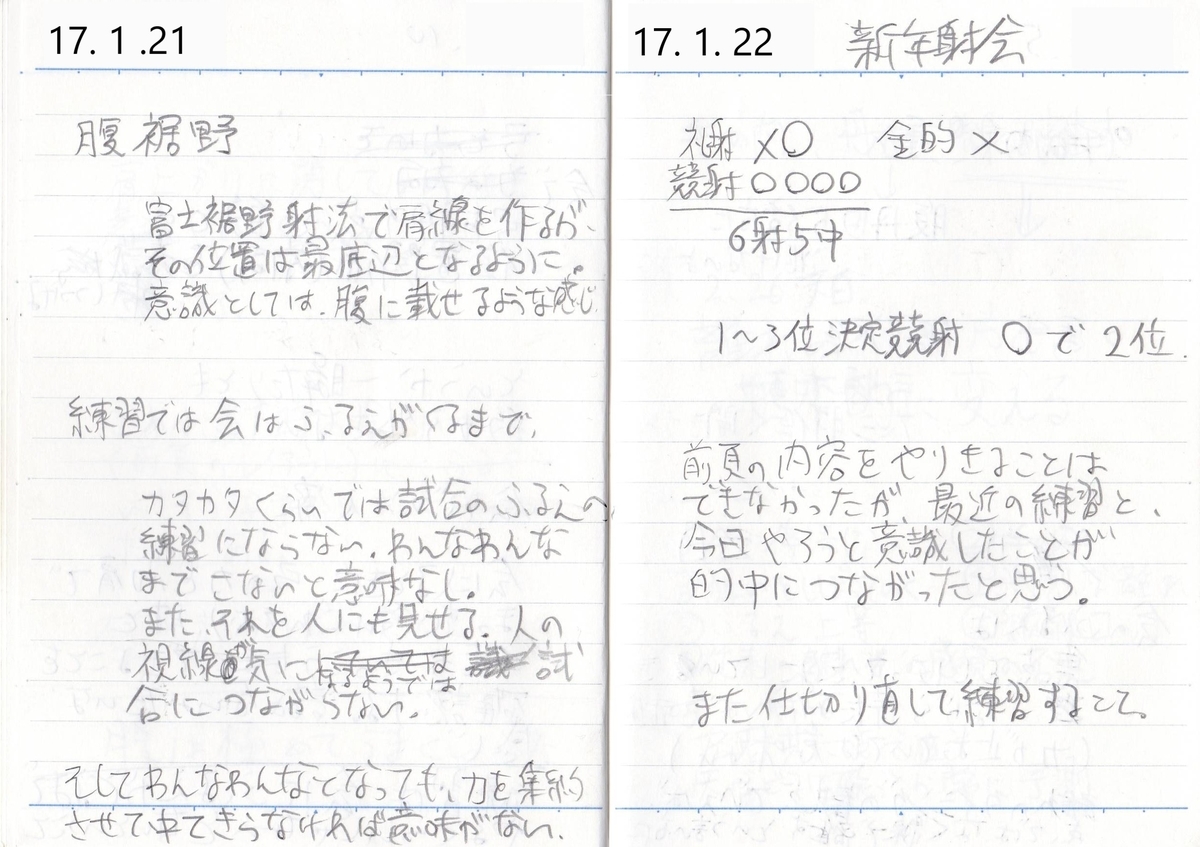 17. 1 .21
腹 裾野
富士裾野射法で肩線を作るが、
その位置は最底辺となるように。
意識としては、腹に載せるような感じ
練習では会はふるえがくるまで、
カタカタくらいでは試合のふるえの
練習にならない。わんなわんな
までさないと意味なし。
また、それを人にも見せる。人の
視線が気に
なるようでは 試
合につながらない。
そしてわんなわんなとなっても、力を集約
させて中てきらなければ意味がない。
17. 1. 22 新年射会
礼射 ×○ 金的 ×
競射 ○○○○
6射5中
1〜3位決定競射 ○で2位.
前頁の内容をやりきることは
できなかったが、最近の練習と、
今日やろうと意識したことが
的中につながったと思う。
また仕切り直して練習すること。